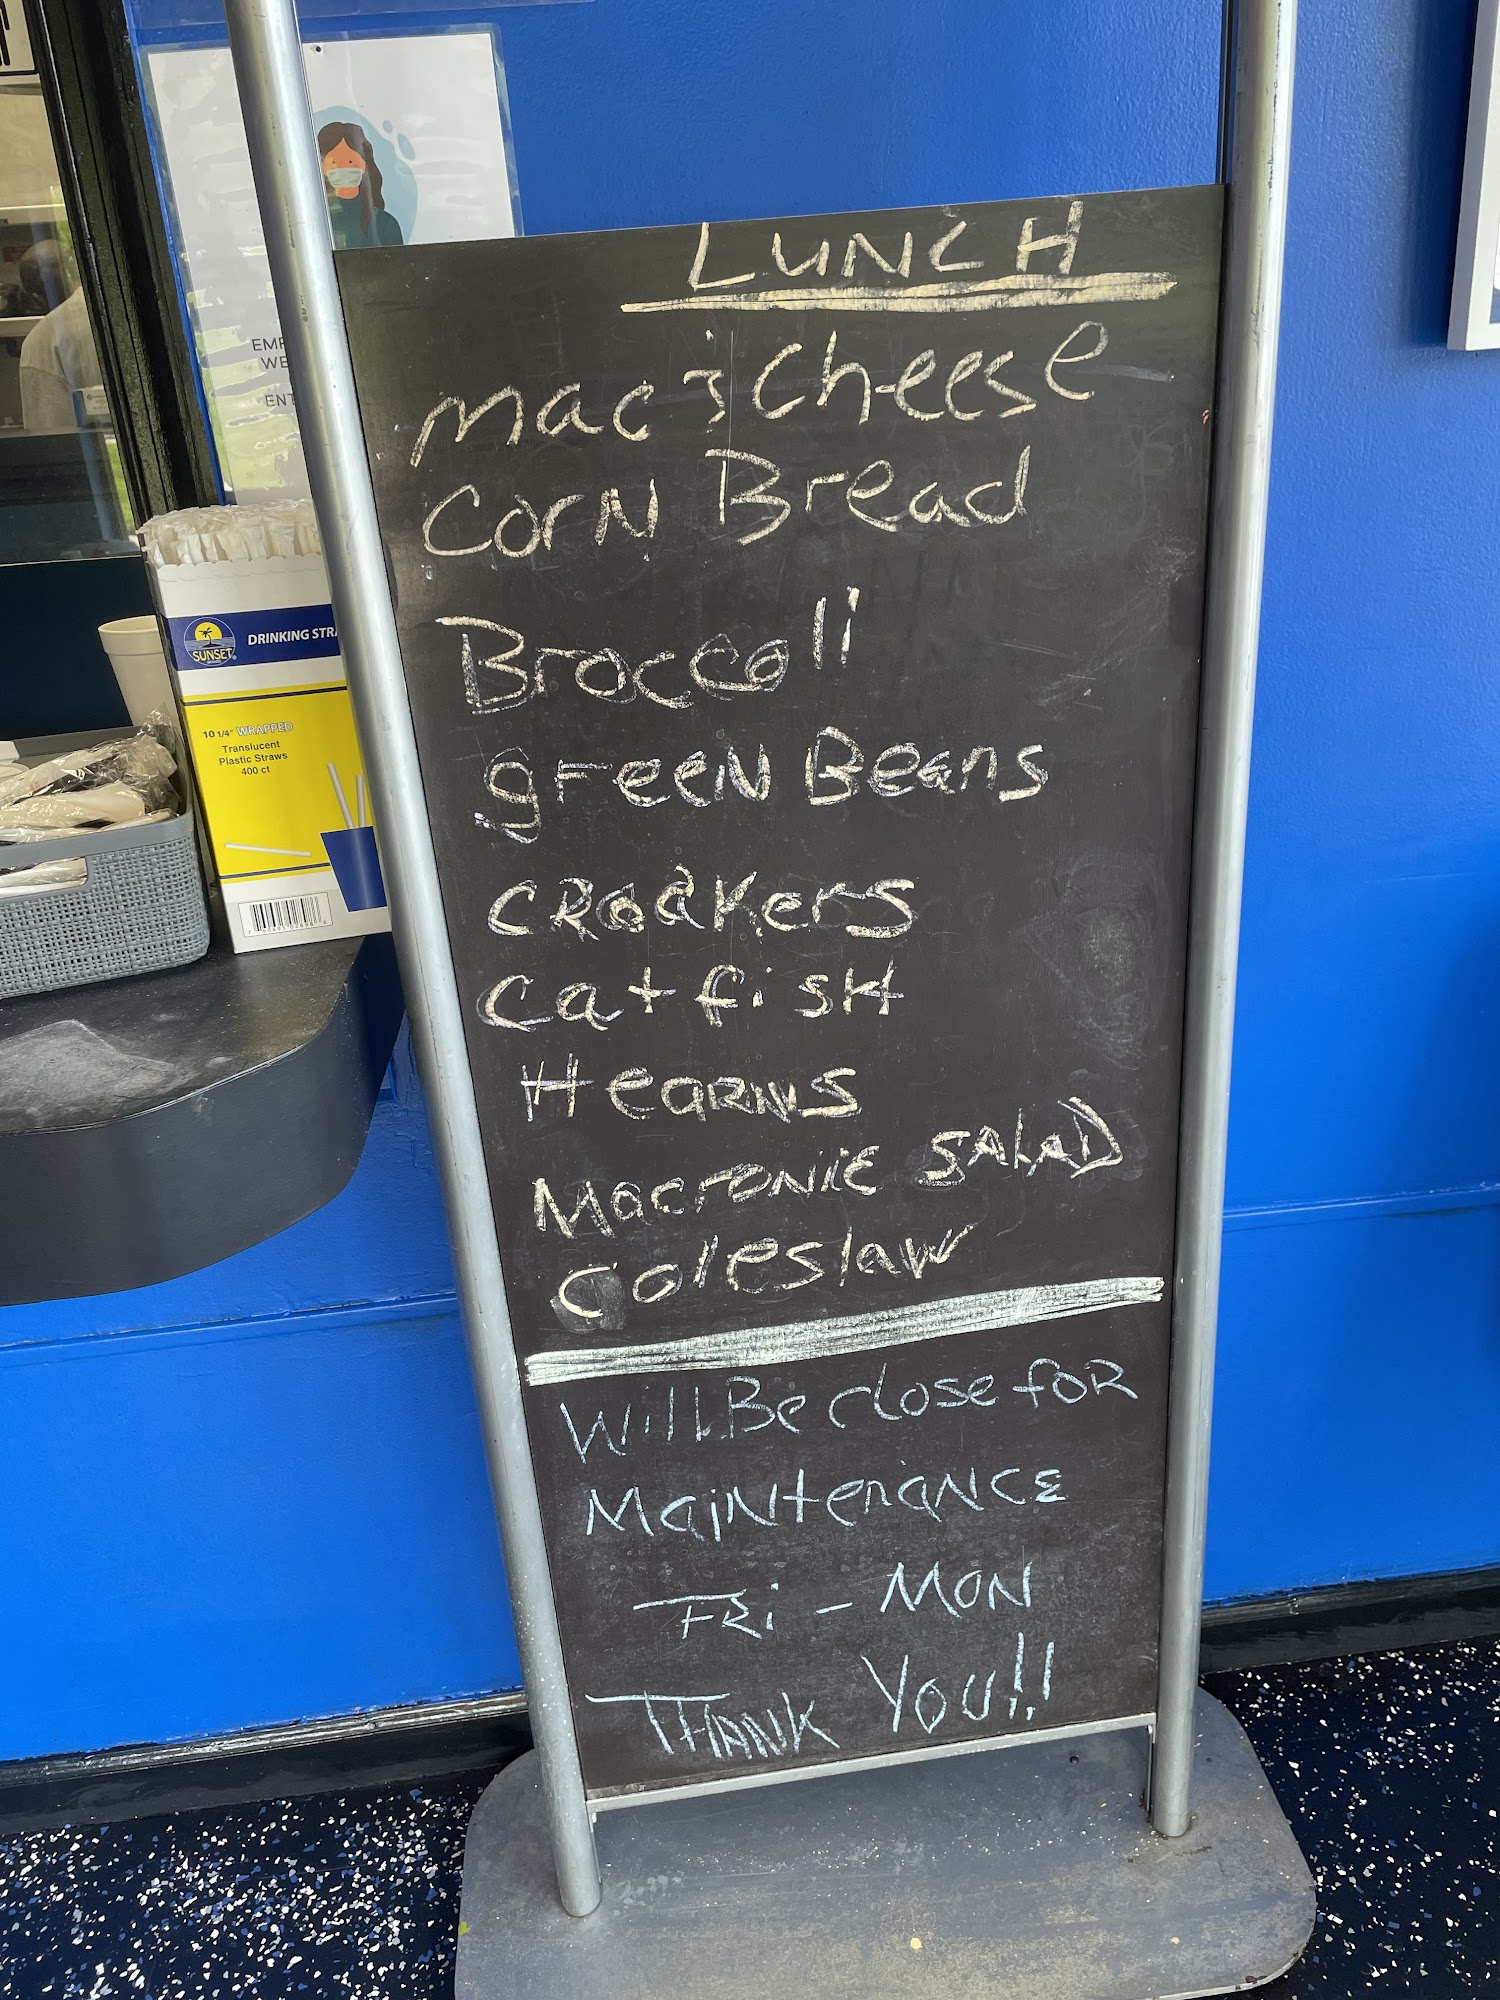 LUNCH
Mac & Cheese
Corn Bread
Broccoli
Green Beans
CROAKERS
Catfish
HEARNS
Macronie SALAD
Coleslaw
Will Be close for
MaiNtenaNCE
FRi - MON
THANK YOU!!
EMP
WE
ENT
SUNSET
DRINKING STR
10 1/4" WRAPPED
Translucent
Plastic Straws
400 ct